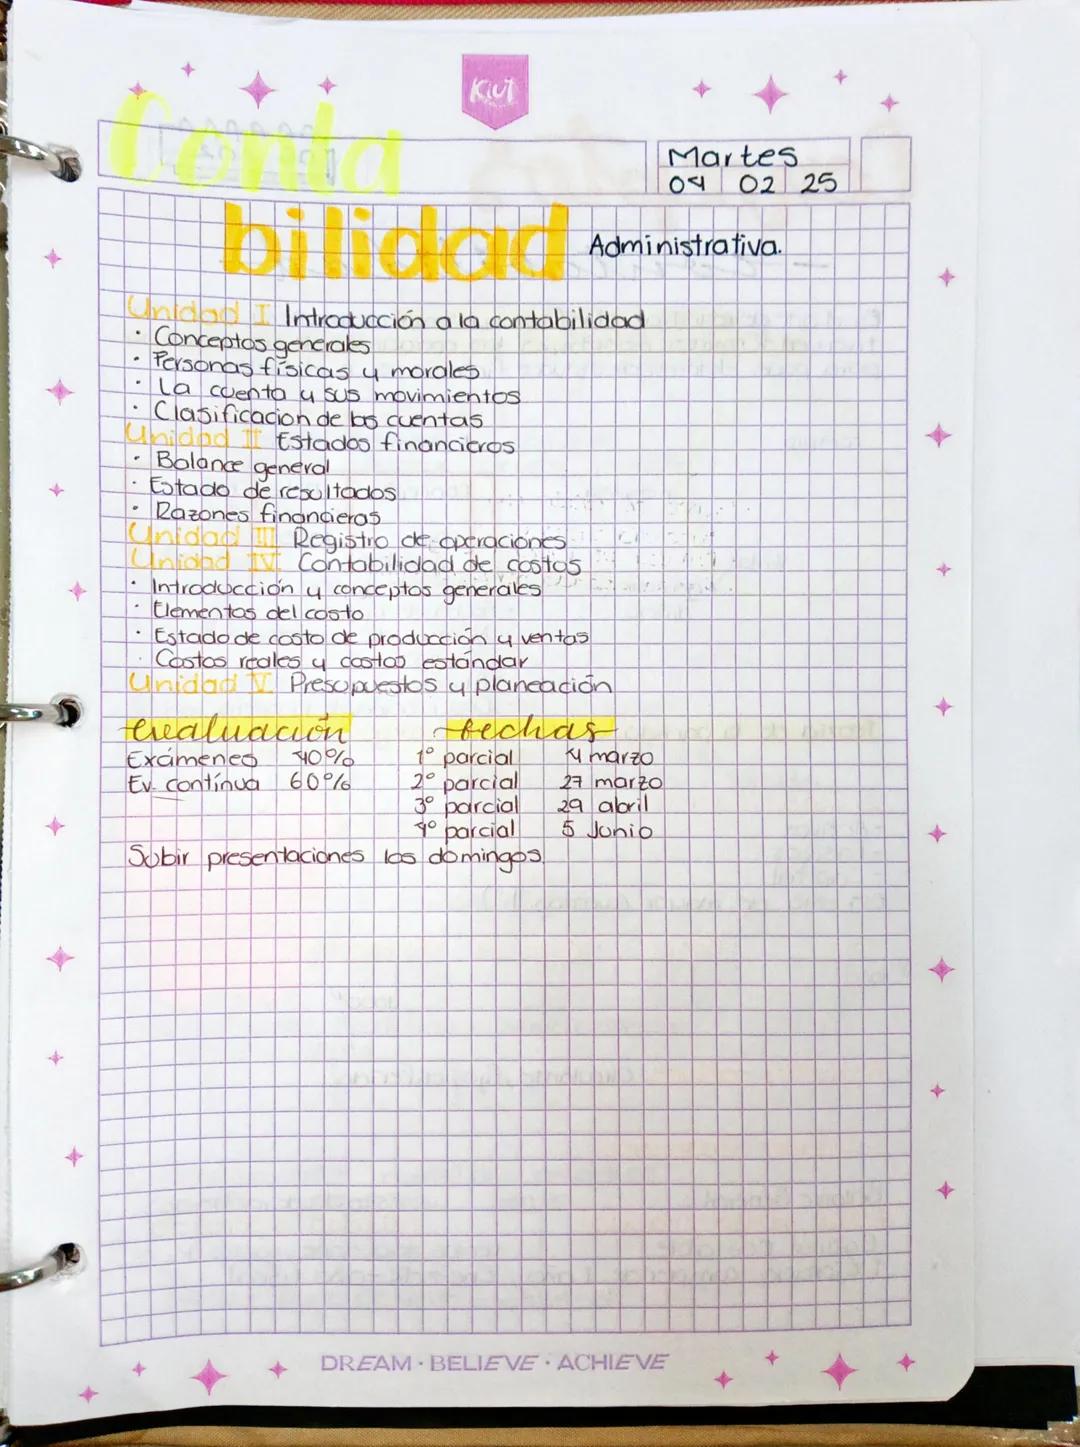 Kiut
Conta
Martes
04 02 25
bilidad Administrativa.
Unidad I Introducción a la contabilidad
· Conceptos generales
· Personas físicas y morales
· La cuenta y sus movimientos
· Clasificacion de las cuentas
Unidad II Estados financieros
· Balance general
· Estado de resultados
· Razones financieras
Unidad III Registro de operaciones
Unidad IV. Contabilidad de costos
· Introducción y conceptos generales
· Elementos del costo
· Estado de costo de producción y ventas
· Costos reales y costos estándar
Unidad V. Presupuestos y planeación
evaluación fechas
Exámenes 40% 1° parcial 4 marzo
Ev. contínua 60% 2° parcial 27 marzo
3° parcial 29 abril
4° parcial 5 Junio
Subir presentaciones los domingos.
DREAM · BELIEVE · ACHIEVE